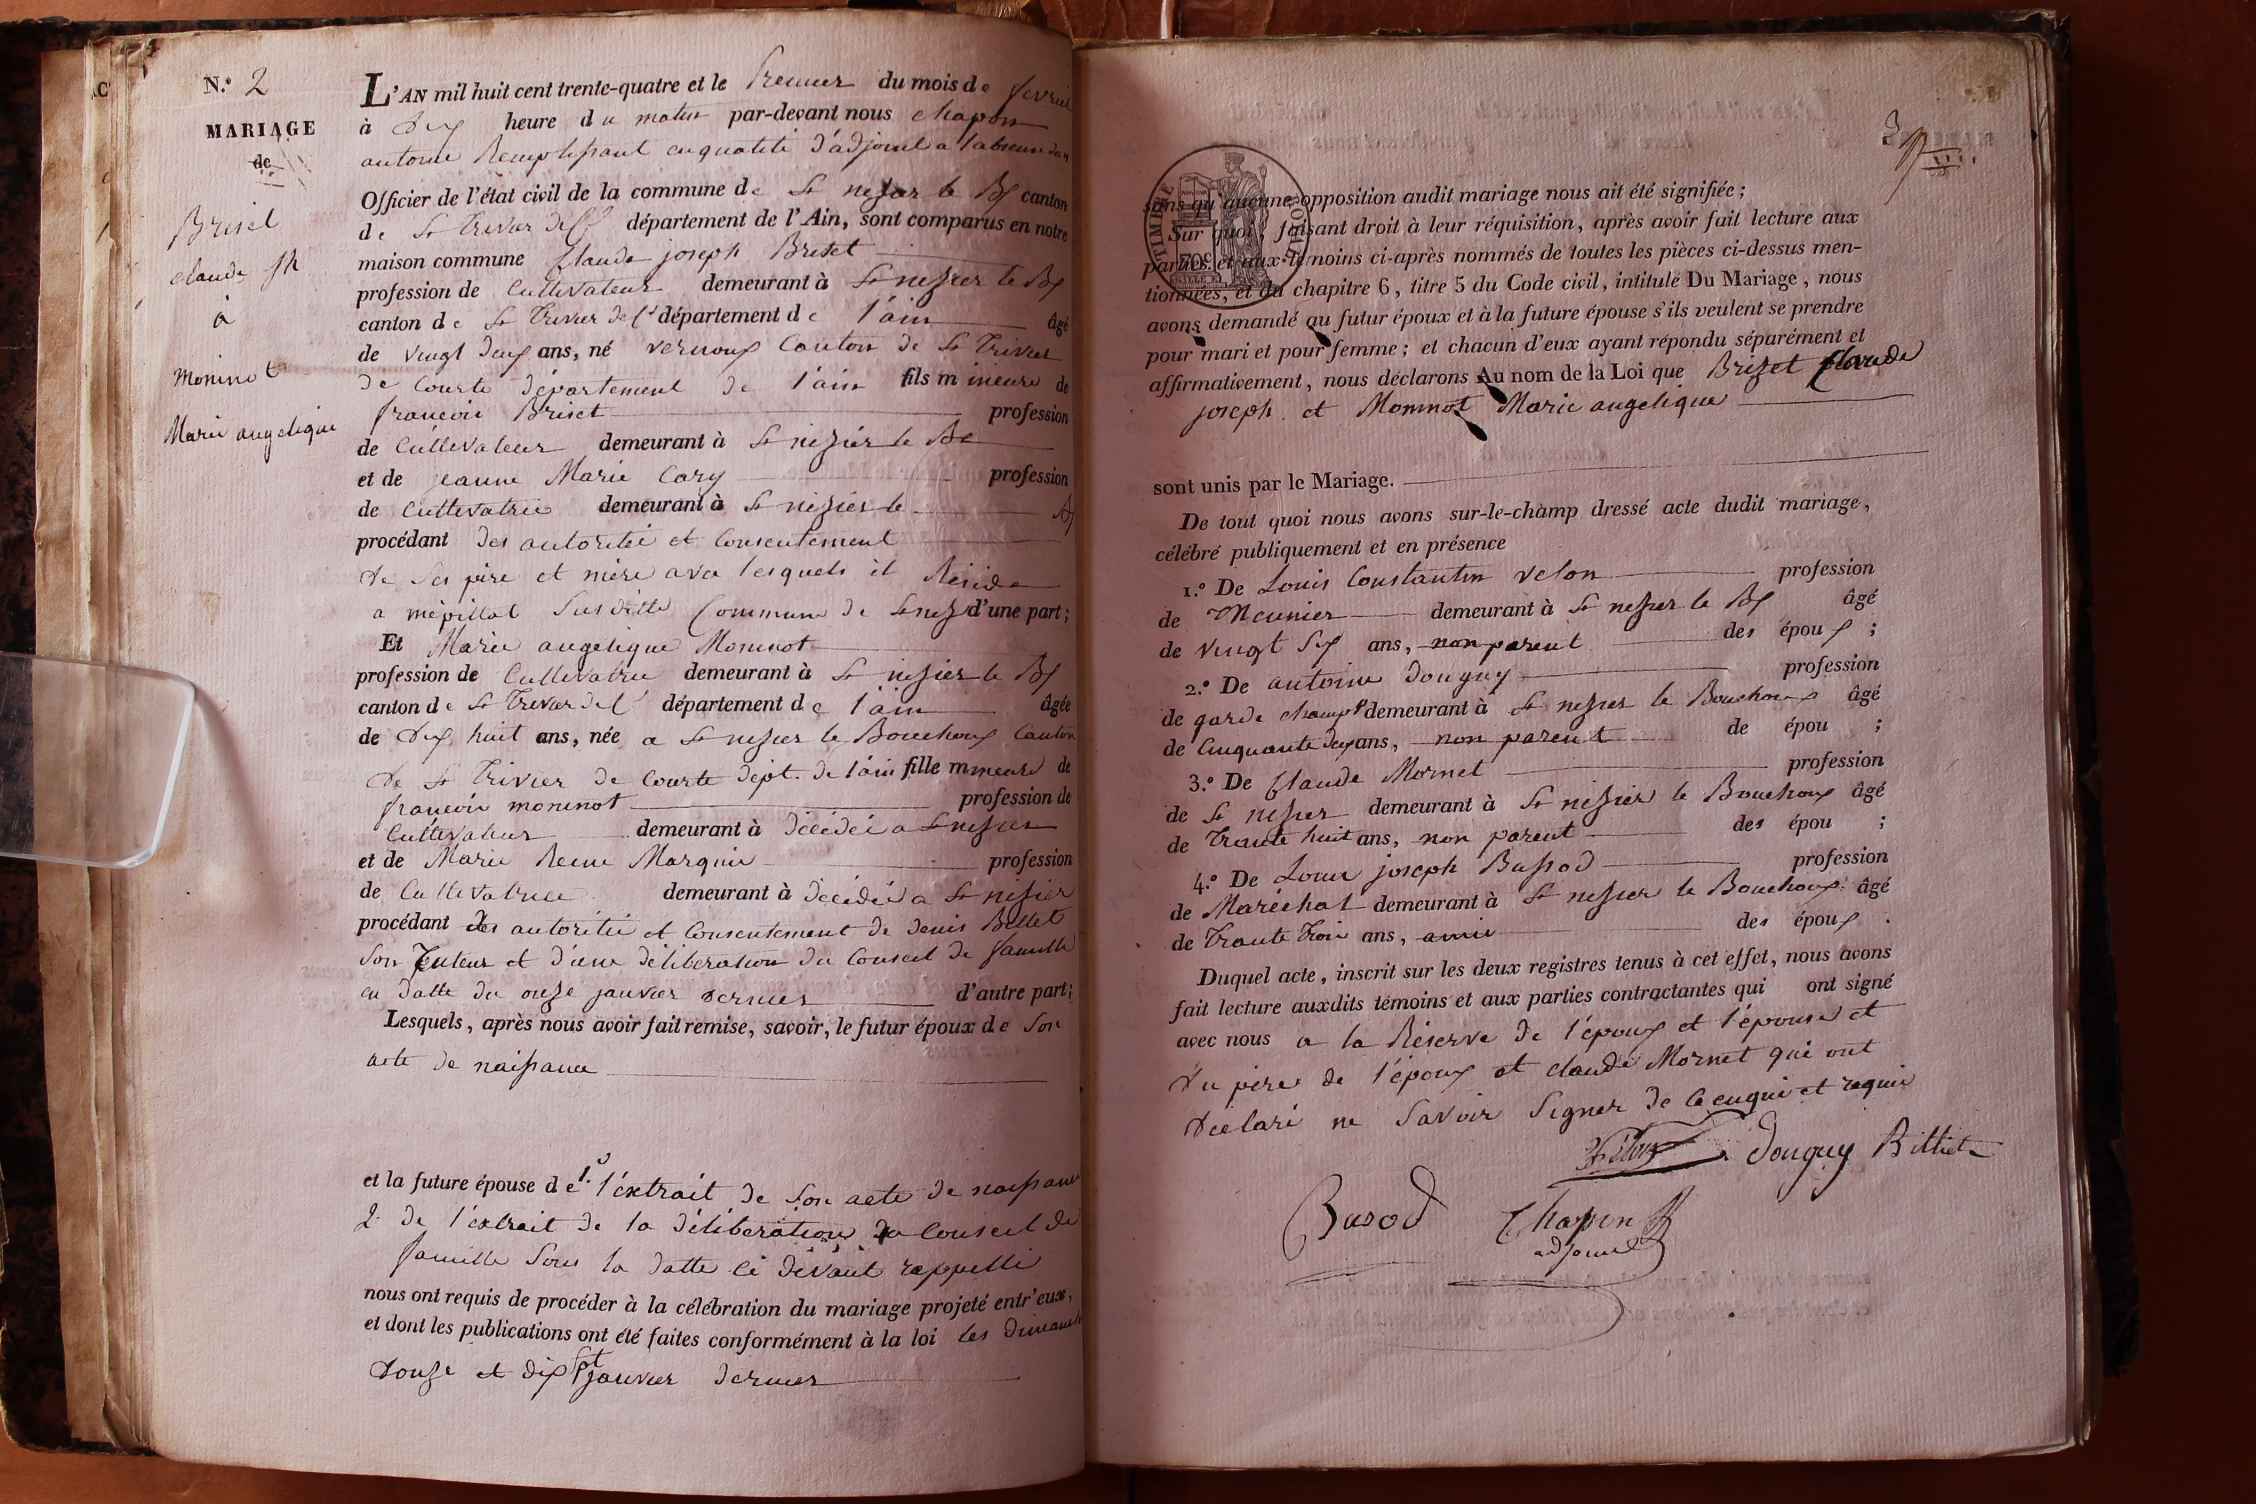 N.º 2
MARIAGE
de
Briset
claude jh
à
moninot
Marie angelique
L'AN mil huit cent trente-quatre et le Premier du mois de fevrier
à dix heure du matin par-devant nous chapon
antoine Remplissant en qualité d'adjoint a l'absence du
Officier de l'état civil de la commune de St nesier le Bx canton
de St Trivier de Ct département de l'Ain, sont comparus en notre
maison commune Claude joseph Briset
profession de Cultivateur demeurant à St nesier le Bx
canton de St Trivier de Ct département de l'ain âgé
de vingt deux ans, né vernoux Canton de St Trivier
de Courte département de l'ain fils mineure de
francois Briset profession
de Cultivateur demeurant à St nisier le Bx
et de jeanne Marie Cory profession
de Cultivatrice demeurant à St nisier le Bx
procédant des autorité et Consentement
de Ses père et mère avec lesquels il Réside
a mépillat Susditte Commune de St nesier d'une part;
Et Marie angelique Moninot
profession de Cultivatrice demeurant à St nesier le Bx
canton de St Trivier de Ct département de l'ain âgée
de dix huit ans, née a St nesier le Bouchoux Canton
de St Trivier de Courte dépt. de l'ain fille mineure de
francois moninot profession de
Cultivateur demeurant à décédé a St nesier
et de Marie Reine Marguin profession
de Cultivatrice demeurant à décédée a St nisier
procédant des autorité et Consentement de denis Billet
Son Tuteur et d'une délibération du Conseil de famille
en datte du onze janvier dernier d'autre part;
Lesquels, après nous avoir fait remise, savoir, le futur époux de Son
acte de naissance
et la future épouse de 1.º l'extrait de Son acte de naissance
2.º de l'extrait de la délibération du Conseil de
famille Sous la datte ci devant rappellé
nous ont requis de procéder à la célébration du mariage projeté entr'eux,
et dont les publications ont été faites conformément à la loi les dimanche
douze et dix sept janvier dernier
3
TIMBRE ROYAL
70c
sans qu'aucune opposition audit mariage nous ait été signifiée;
Sur quoi, faisant droit à leur réquisition, après avoir fait lecture aux
parties et aux témoins ci-après nommés de toutes les pièces ci-dessus men-
tionnées, et du chapitre 6, titre 5 du Code civil, intitulé Du Mariage, nous
avons demandé au futur époux et à la future épouse s'ils veulent se prendre
pour mari et pour femme; et chacun d'eux ayant répondu séparément et
affirmativement, nous déclarons Au nom de la Loi que Brizet Claude
joseph et Moninot Marie angelique
sont unis par le Mariage.
De tout quoi nous avons sur-le-champ dressé acte dudit mariage,
célébré publiquement et en présence
1.º De Louis Constantin velon profession
de Meunier demeurant à St nesier le Bx âgé
de vingt Six ans, non parent des époux;
2.º De antoine douguy profession
de garde champt demeurant à St nesier le Bouchoux âgé
de Cinquante deux ans, non parent de épou ;
3.º De Claude Mornet profession
de St nesier demeurant à St nisier le Bouchoux âgé
de Trante huit ans, non parent des épou ;
4.º De Louis joseph Bassod profession
de Maréchal demeurant à St nesier le Bouchoux âgé
de Trante Trois ans, amis des époux.
Duquel acte, inscrit sur les deux registres tenus à cet effet, nous avons
fait lecture auxdits témoins et aux parties contractantes qui ont signé
avec nous a la Réserve de l'époux et l'épouse et
du père de l'époux et claude Mornet qui ont
déclaré ne Savoir Signer de ce enquis et requis
Velon douguy Billiet
Basod Chapon
adjoint